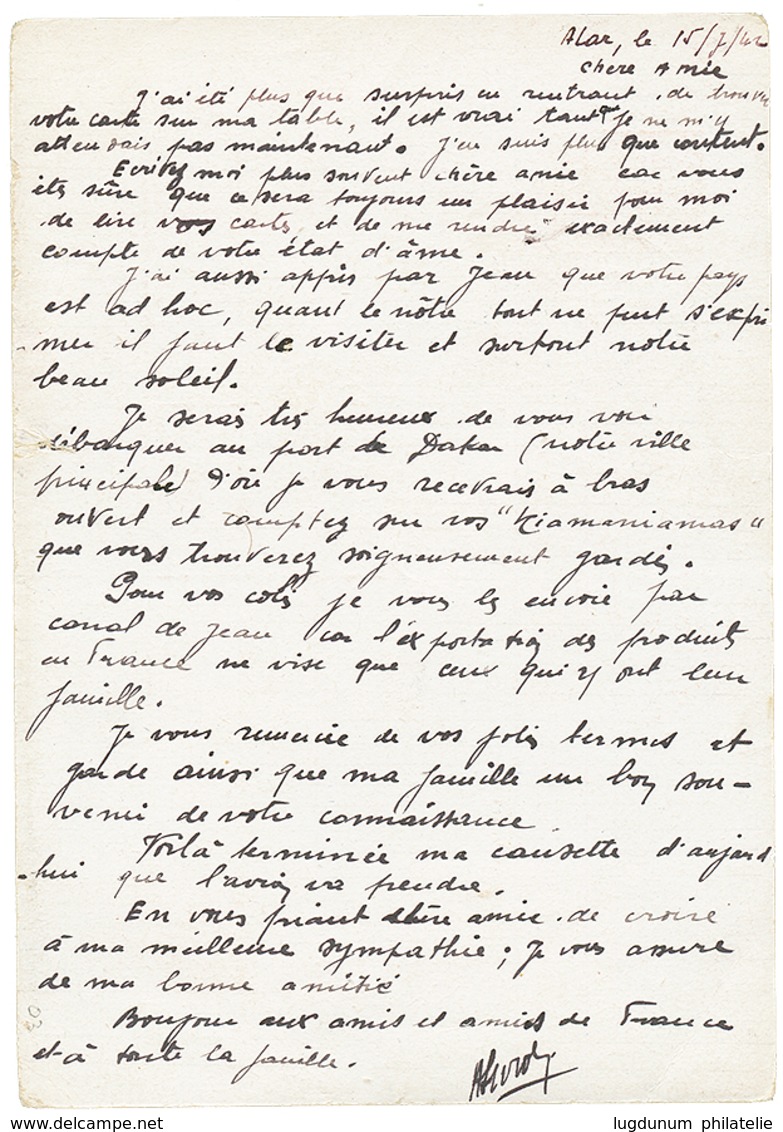 Atar, le 15/7/42
Chère Amie
J'ai été plus que surpris en rentrant de trouver
votre carte sur ma table, il est vrai tant je ne m'y
attendais pas maintenant. J'en suis plus que content.
Ecrivez moi plus souvent chère amie car vous
êtes sûre que ce sera toujours un plaisir pour moi
de lire vos cartes et de me rendre exactement
compte de votre état d'âme.
J'ai aussi appris par Jean que votre pays
est ad hoc, quant le nôtre tout ne peut s'expri
-mer il faut le visiter et surtout notre
beau soleil.
Je serais très heureux de vous voir
débarquer au port de Dakar (notre ville
principale) d'où je vous recevrais à bras
ouvert et comptez sur vos "Kiamaniamas"
que vous trouverez soigneusement gardés.
Pour vos colis je vous les envoie par
canal de Jean car l'exportation des produits
en France ne vise que ceux qui y ont leur
famille.
Je vous remercie de vos jolis termes et
garde ainsi que ma famille un bon sou-
venir de votre connaissance
Voilà terminée ma causette d'aujourd
-hui que l'avion va prendre.
En vous priant chère amie de croire
à ma meilleure sympathie ; je vous assure
de ma bonne amitié
Bonjour aux amis et amies de France
et à toute la famille.
03
lugdunum philatelie